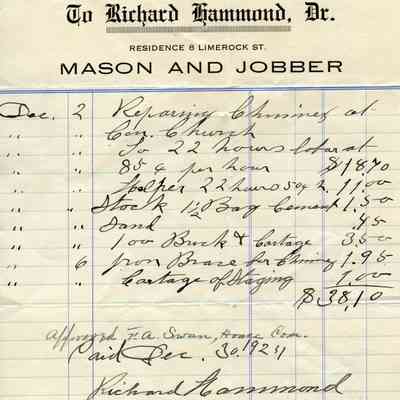 To Richard Hammond, Dr.
RESIDENCE 8 LIMEROCK ST.
MASON AND JOBBER
Dec. 2 Reparing Chimney at
" " Con. Church
" " To 22 hours labar at
" " 85¢ per hour $18.70
" " Helper 22 hours 50¢ h. 11.00
" " Stock 1½ Bag Cement 1.50
" " Sand .45
" " 100 Brick & Cartage 3.50
" 6 Iron Brace for Chimney 1.95
" " Cartage of Staging 1.00
$38.10
Approved F.A. Swan, House Com.
Paid Dec. 30, 1924
Richard Hammond